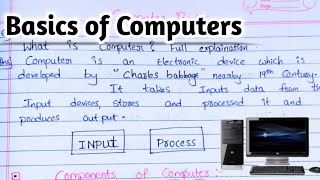 Basics of Computers
What is Computer? Full explaination
Ans Computer is an Electronic device which is
developed by "Charles babbage" nearby 19th Century.
It takes Inputs data from the
Input devices, stores and processed it and
produces output.
INPUT
Process
Components of Computer:-